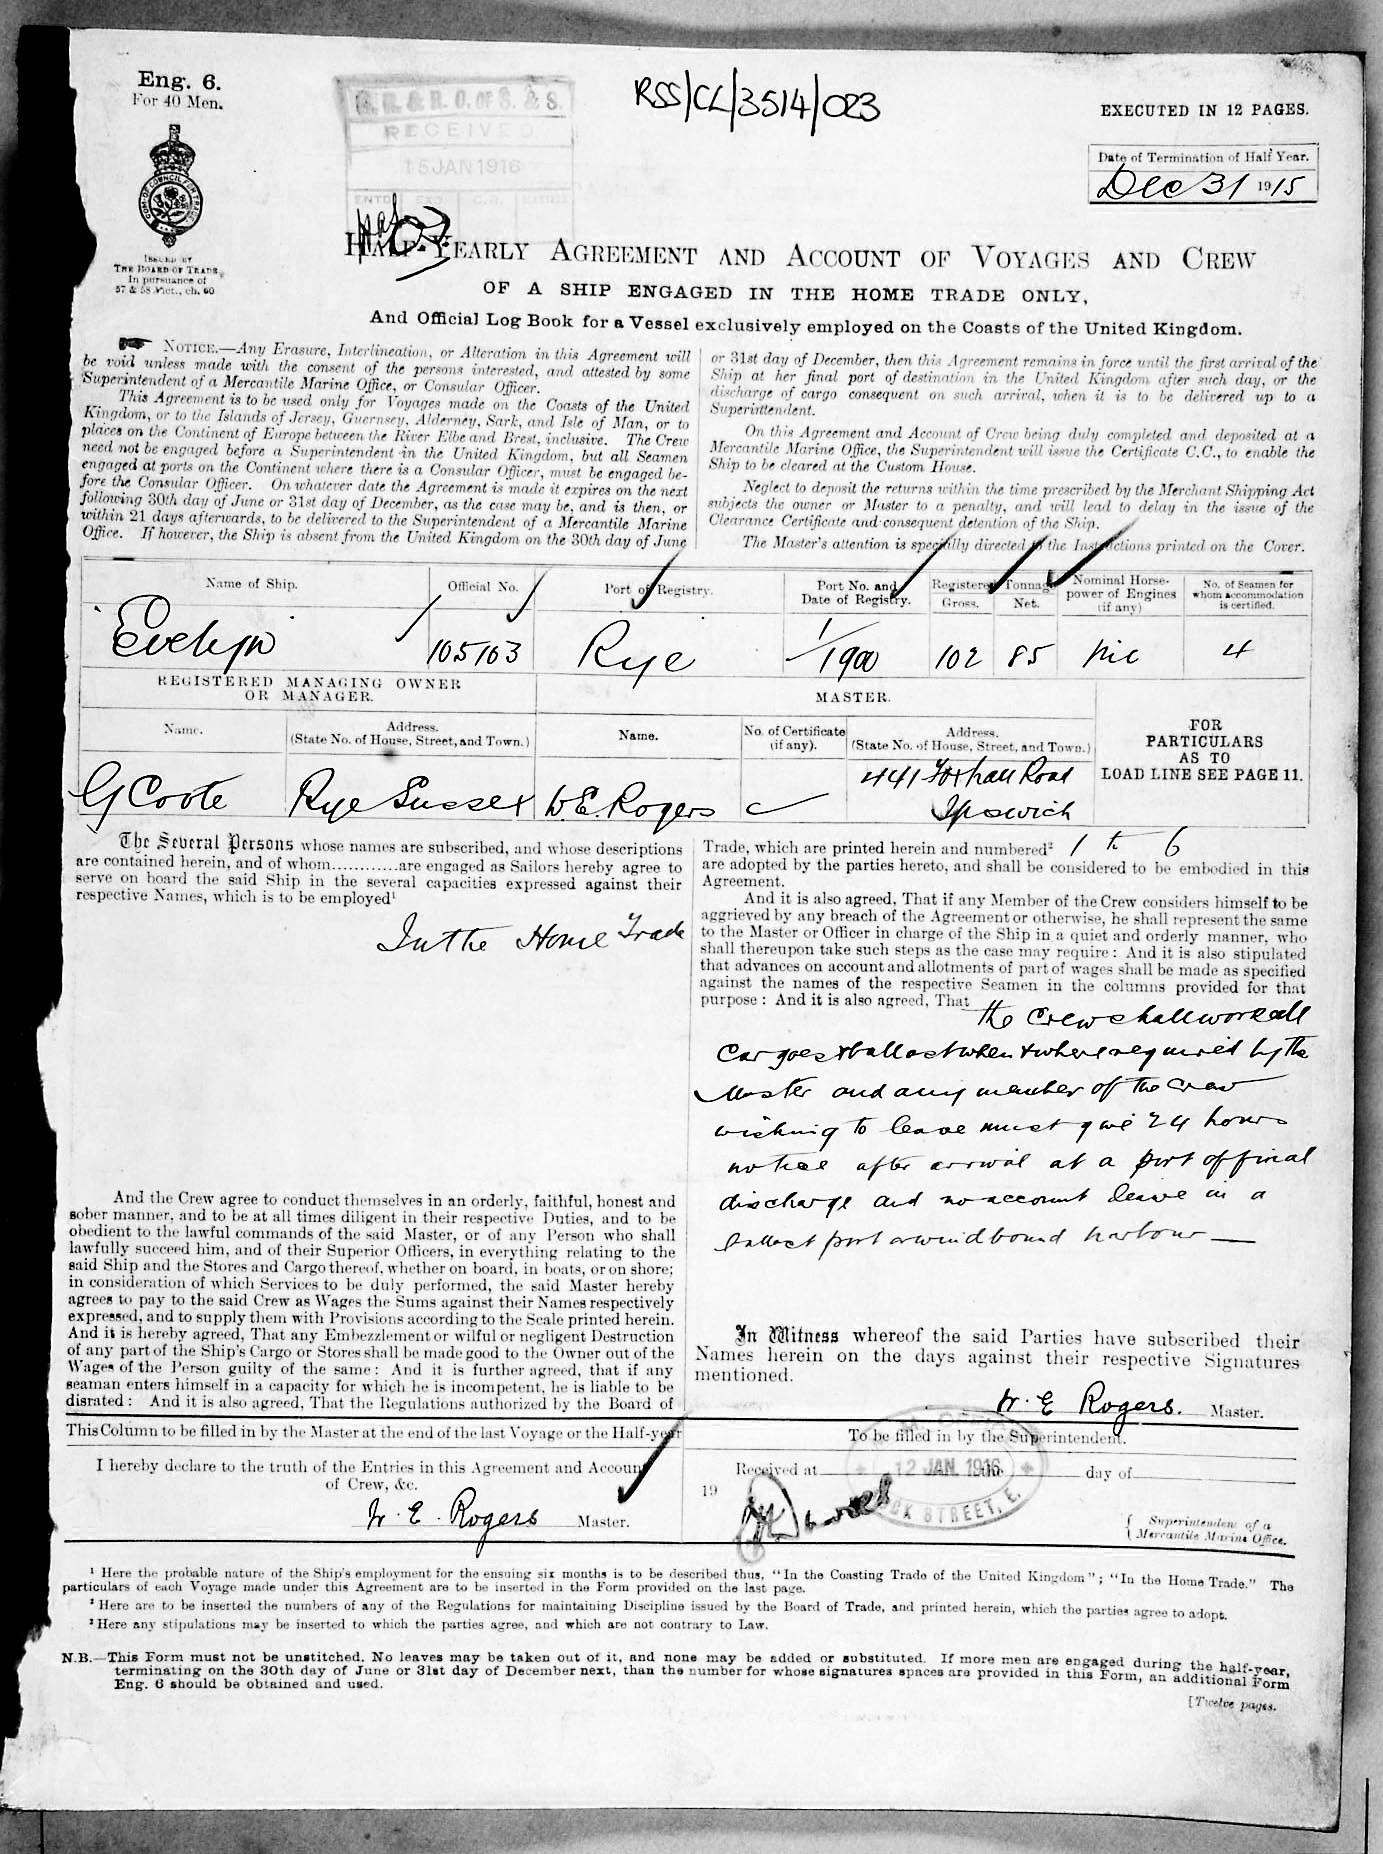 Eng. 6.
For 40 Men.
RSS/CL/3514/023
EXECUTED IN 12 PAGES.
G. R. & R. O. OF S. & S.
RECEIVED
15 JAN 1916
Date of Termination of Half Year.
Dec 31 1915
ISSUED BY
THE BOARD OF TRADE,
In pursuance of
57 & 58 Vict., ch. 60
HALF-YEARLY AGREEMENT AND ACCOUNT OF VOYAGES AND CREW
OF A SHIP ENGAGED IN THE HOME TRADE ONLY,
And Official Log Book for a Vessel exclusively employed on the Coasts of the United Kingdom.
NOTICE.—Any Erasure, Interlineation, or Alteration in this Agreement will
be void unless made with the consent of the persons interested, and attested by some
Superintendent of a Mercantile Marine Office, or Consular Officer.
This Agreement is to be used only for Voyages made on the Coasts of the United
Kingdom, or to the Islands of Jersey, Guernsey, Alderney, Sark, and Isle of Man, or to
places on the Continent of Europe between the River Elbe and Brest, inclusive. The Crew
need not be engaged before a Superintendent in the United Kingdom, but all Seamen
engaged at ports on the Continent where there is a Consular Officer, must be engaged be-
fore the Consular Officer. On whatever date the Agreement is made it expires on the next
following 30th day of June or 31st day of December, as the case may be, and is then, or
within 21 days afterwards, to be delivered to the Superintendent of a Mercantile Marine
Office. If however, the Ship is absent from the United Kingdom on the 30th day of June
or 31st day of December, then this Agreement remains in force until the first arrival of the
Ship at her final port of destination in the United Kingdom after such day, or the
discharge of cargo consequent on such arrival, when it is to be delivered up to a
Superintendent.
On this Agreement and Account of Crew being duly completed and deposited at a
Mercantile Marine Office, the Superintendent will issue the Certificate C.C., to enable the
Ship to be cleared at the Custom House.
Neglect to deposit the returns within the time prescribed by the Merchant Shipping Act
subjects the owner or Master to a penalty, and will lead to delay in the issue of the
Clearance Certificate and consequent detention of the Ship.
The Master's attention is specially directed to the Instructions printed on the Cover.
Name of Ship.
Official No.
Port of Registry.
Port No. and
Date of Registry.
Registered Tonnage
Gross.
Net.
Nominal Horse-
power of Engines
(if any)
No. of Seamen for
whom accommodation
is certified.
Evelyn 105103 Rye 1/1900 102 85 nil 4
REGISTERED MANAGING OWNER
OR MANAGER.
MASTER.
Name.
Address.
(State No. of House, Street, and Town.)
Name.
No. of Certificate
(if any).
Address.
(State No. of House, Street, and Town.)
FOR
PARTICULARS
AS TO
LOAD LINE SEE PAGE 11.
G Coote Rye Sussex W.E. Rogers
441 Foxhall Road
Ipswich
The Several Persons whose names are subscribed, and whose descriptions
are contained herein, and of whom............are engaged as Sailors hereby agree to
serve on board the said Ship in the several capacities expressed against their
respective Names, which is to be employed¹
In the Home Trade
And the Crew agree to conduct themselves in an orderly, faithful, honest and
sober manner, and to be at all times diligent in their respective Duties, and to be
obedient to the lawful commands of the said Master, or of any Person who shall
lawfully succeed him, and of their Superior Officers, in everything relating to the
said Ship and the Stores and Cargo thereof, whether on board, in boats, or on shore;
in consideration of which Services to be duly performed, the said Master hereby
agrees to pay to the said Crew as Wages the Sums against their Names respectively
expressed, and to supply them with Provisions according to the Scale printed herein.
And it is hereby agreed, That any Embezzlement or wilful or negligent Destruction
of any part of the Ship's Cargo or Stores shall be made good to the Owner out of the
Wages of the Person guilty of the same: And it is further agreed, that if any
seaman enters himself in a capacity for which he is incompetent, he is liable to be
disrated: And it is also agreed, That the Regulations authorized by the Board of
Trade, which are printed herein and numbered² 1 to 6
are adopted by the parties hereto, and shall be considered to be embodied in this
Agreement.
And it is also agreed, That if any Member of the Crew considers himself to be
aggrieved by any breach of the Agreement or otherwise, he shall represent the same
to the Master or Officer in charge of the Ship in a quiet and orderly manner, who
shall thereupon take such steps as the case may require: And it is also stipulated
that advances on account and allotments of part of wages shall be made as specified
against the names of the respective Seamen in the columns provided for that
purpose: And it is also agreed, That
the Crew shall work all
Cargoes & ballast when & where required by the
Master and any member of the crew
wishing to leave must give 24 hours
notice after arrival at a port of final
discharge and no account leave in a
ballast port or windbound harbour —
In Witness whereof the said Parties have subscribed their
Names herein on the days against their respective Signatures
mentioned.
W. E Rogers. Master.
This Column to be filled in by the Master at the end of the last Voyage or the Half-year
I hereby declare to the truth of the Entries in this Agreement and Account
of Crew, &c.
W. E. Rogers Master.
To be filled in by the Superintendent.
Received at the day of
19
12 JAN. 1916
STREET, E.
Superintendent of a
Mercantile Marine Office.
¹ Here the probable nature of the Ship's employment for the ensuing six months is to be described thus, "In the Coasting Trade of the United Kingdom"; "In the Home Trade." The
particulars of each Voyage made under this Agreement are to be inserted in the Form provided on the last page.
² Here are to be inserted the numbers of any of the Regulations for maintaining Discipline issued by the Board of Trade, and printed herein, which the parties agree to adopt.
³ Here any stipulations may be inserted to which the parties agree, and which are not contrary to Law.
N.B.—This Form must not be unstitched. No leaves may be taken out of it, and none may be added or substituted. If more men are engaged during the half-year,
terminating on the 30th day of June or 31st day of December next, than the number for whose signatures spaces are provided in this Form, an additional Form
Eng. 6 should be obtained and used.
[Twelve pages.